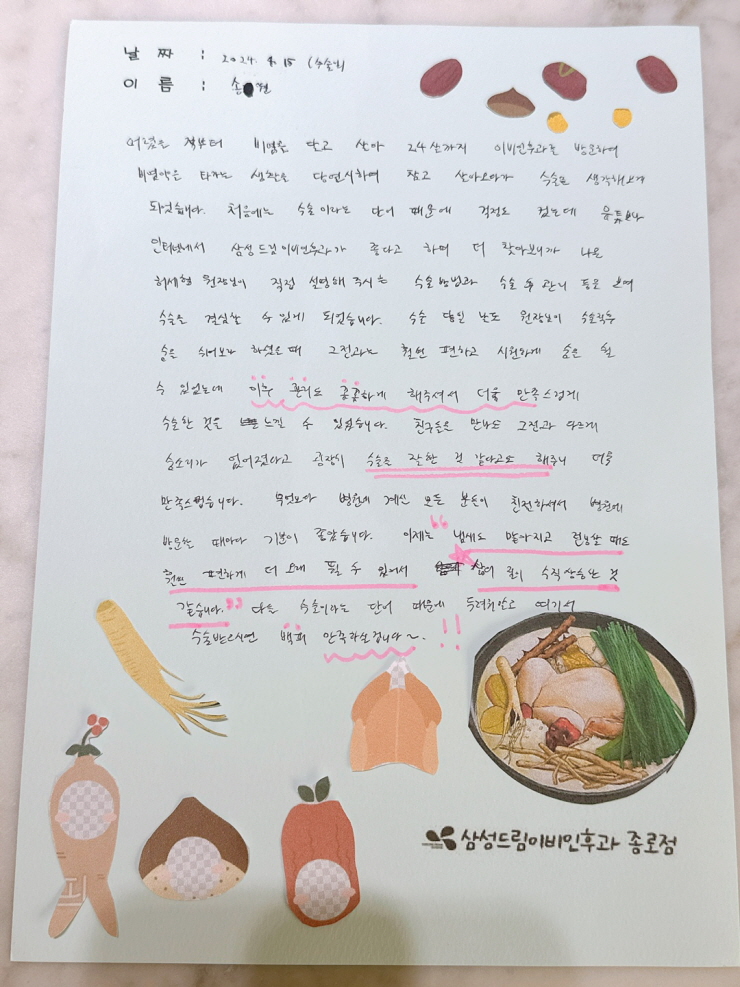 날 짜 : 2024. 15 (수술일)
이 름 : 손 현
어렸을 적부터 비염을 달고 살아 24살까지 이비인후과를 방문하여
비염약은 타가는 생활을 당연시하여 참고 살아오다가 수술을 생각해보게
되었습니다. 처음에는 수술이라는 단어 때문에 걱정도 컸는데 유튜브나
인터넷에서 삼성드림이비인후과가 좋다고 하며 더 찾아보니까 나온
허세형 원장님이 직접 설명해 주시는 수술방법과 수술 후 관리 등을 보며
수술을 결심할 수 있게 되었습니다. 수술 당일 날도 원장님이 수술직후
숨을 쉬어보라 하셨을 때 그전과는 훨씬 편하고 시원하게 숨을 쉴
수 있었는데 이후 관리도 꼼꼼하게 해주셔서 더욱 만족스럽게
수술한 것을 느낄 수 있었습니다. 친구들을 만나도 그전과 다르게
숨소리가 없어졌다고 굉장히 수술을 잘한 것 같다고도 해주니 더욱
만족스럽습니다. 무엇보다 병원에 계신 모든 분들이 친절하셔서 병원에
방문할 때마다 기분이 좋았습니다. 이제는 "냄새도 맡아지고 운동할 때도
훨씬 편하게 더 오래 뛸 수 있어서 삶의 질이 수직상승한 것
같습니다." 다들 수술이라는 단어 때문에 두려워말고 여기서
수술받으시면 백퍼 만족하실겁니다~. !!
삼성드림이비인후과 종로점